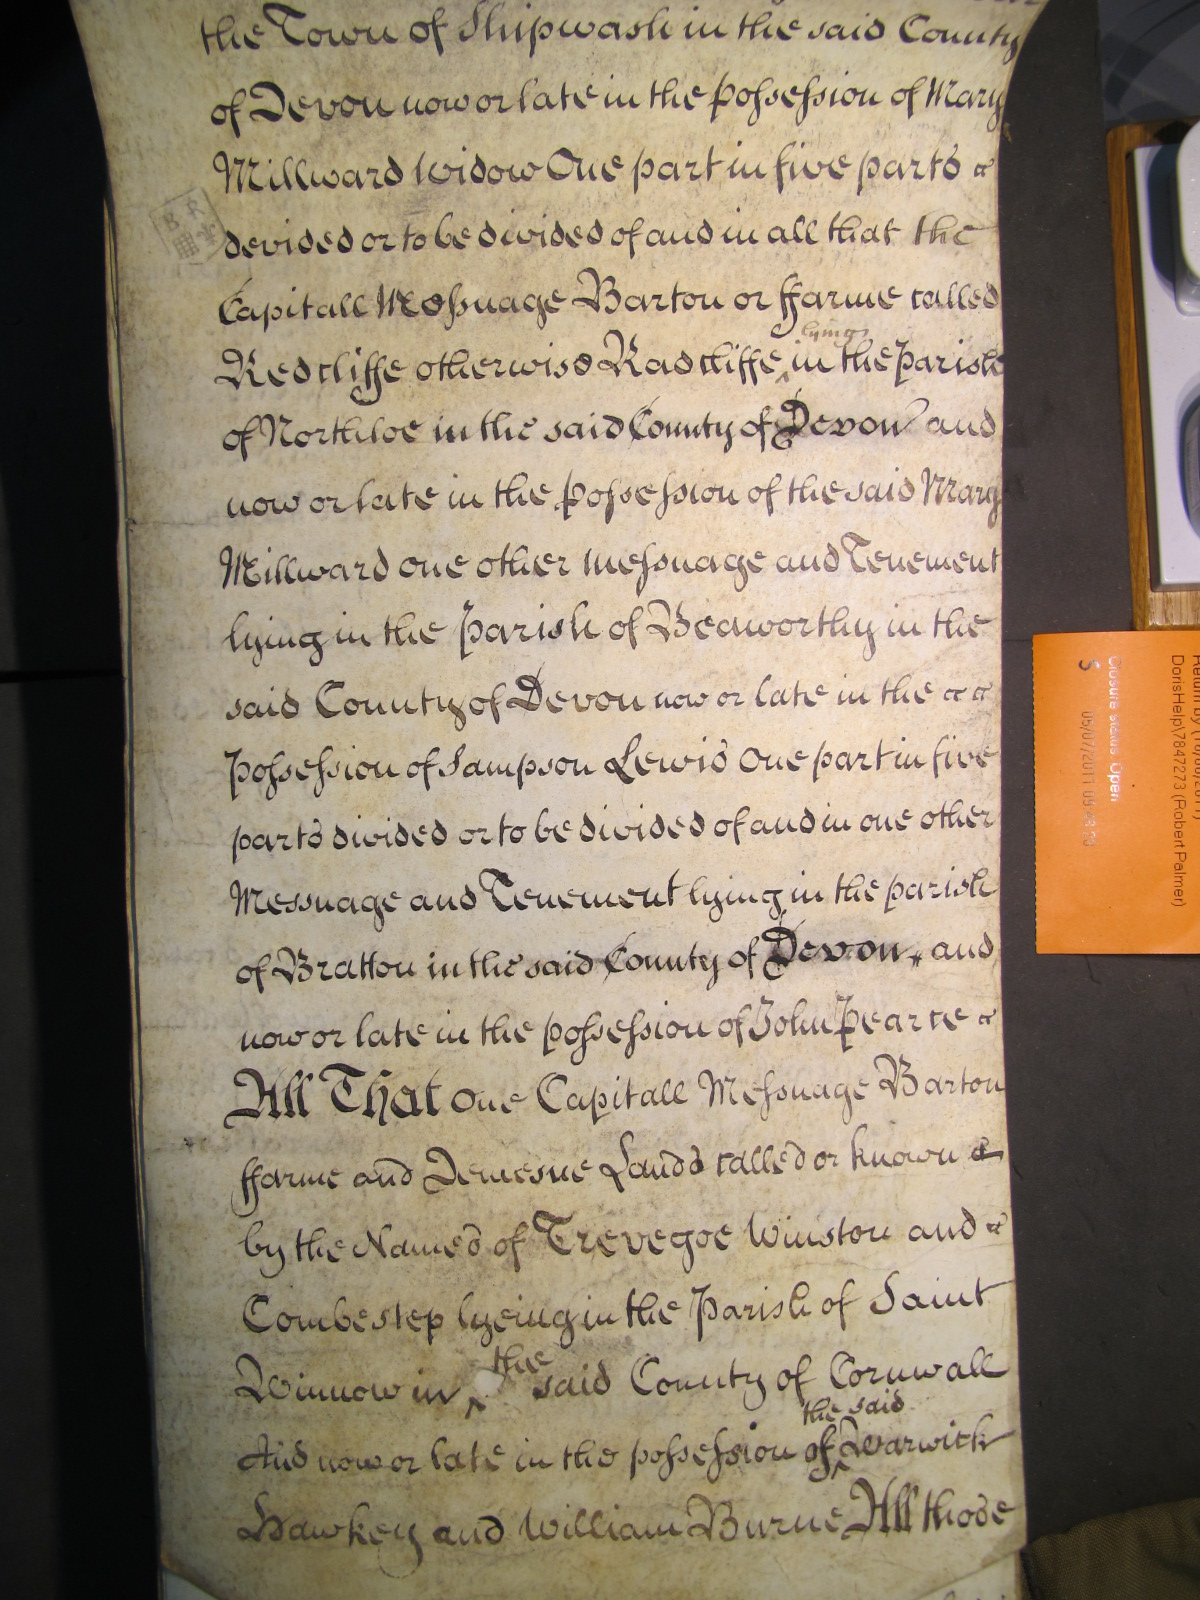 the Town of Shipwash in the said County
of Devon now or late in the possession of Mary
Millward Widow One part in five parts
devided or to be divided of and in all that the
Capitall Messuage Barton or ffarme called
Redcliffe otherwise Radcliffe lying in the Parish
of Northloe in the said County of Devon and
now or late in the possession of the said Mary
Millward one other messuage and Tenement
lying in the Parish of Beaworthy in the
said County of Devon now or late in the
Possession of Sampson Lewis One part in five
parts divided or to be divided of and in one other
Messuage and Tenement lying in the parish
of Bratton in the said County of Devon and
now or late in the possession of John Pearce
All That One Capitall Messuage Barton
ffarme and Demesne Lands called or known
by the Names of Trevegoe Winston and
Combestep lyeing in the Parish of Saint
Winnow in the said County of Cornwall
And now or late in the possession of the said Warwick
Hawkey and William Burne All those
Closure status: Open
S
DorisHelp\7847273 (Robert Palmer)